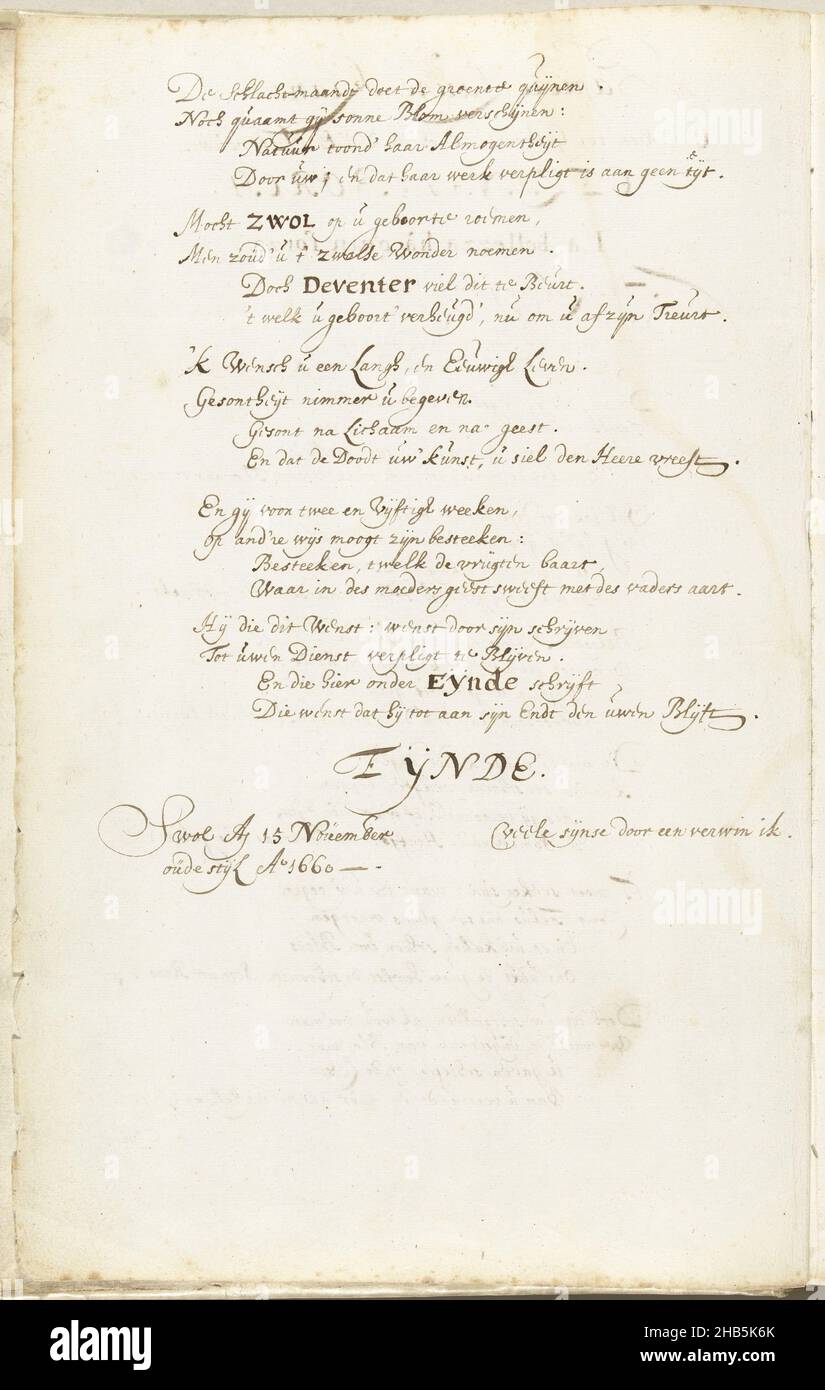 De Schlacht-maandt doet de groente quijnen.
Noch quaamt gij sonne Blom verschijnen:
Natuur toond' haar Almogentheijt
Door uw; en dat haar werk verpligt is aan geen tijt.
Mocht ZWOL op u geboorte roemen,
Men zoud' u t' zwolse Wonder noemen.
Doch Deventer viel dit te Beurt.
't welk u geboort' verheugd', nu om u af zijn Treurt.
'k Wensch u een Langh, en Eeuwigh Leven.
Gesontheijt nimmer u begeven.
Gesont na Lichaam en na geest.
En dat de Doodt uw' kunst, u siel den Heere vreest.
En gij voor twee en Vijftigh weeken,
op and're wijs moogt zijn besteeken:
Besteeken, twelk de vrugten baart,
Waar in des moeders geest sweeft met des vaders aart.
Hij die dit Wenst: wenst door sijn schrijven
Tot uwen Dienst verpligt te Blijven.
En die hier onder Eijnde schrijft,
Die wenst dat hij tot aan sijn Endt den uwen Blijft.
EIJNDE.
Swol 15 November
oude stijl Ao 1660
veele sijnse door een verwin ik.
alamy
Image ID: 2HB5K6K
www.alamy.com